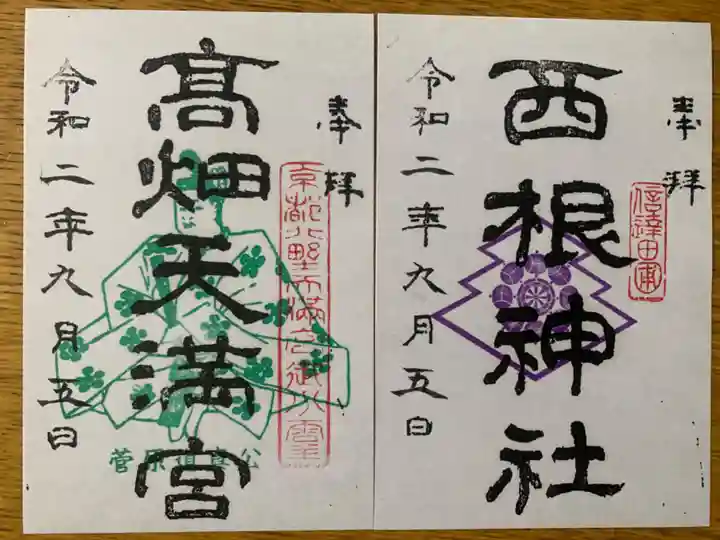 奉拝
信達田圃
西根神社
令和二年九月五日
奉拝
京都北野天満宮御分霊
髙畑天満宮
菅原道真公
令和二年九月五日